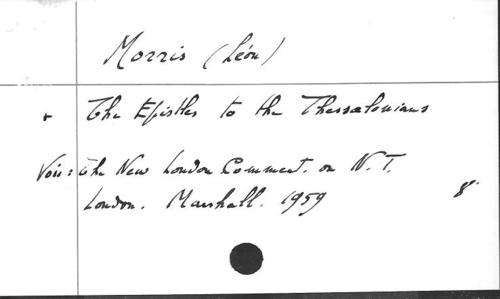 Morris (Léon)
+ The Epistles to the Thessalonians
Voir: the New London Comment. on N.T.
London. Marshall. 1959 8°